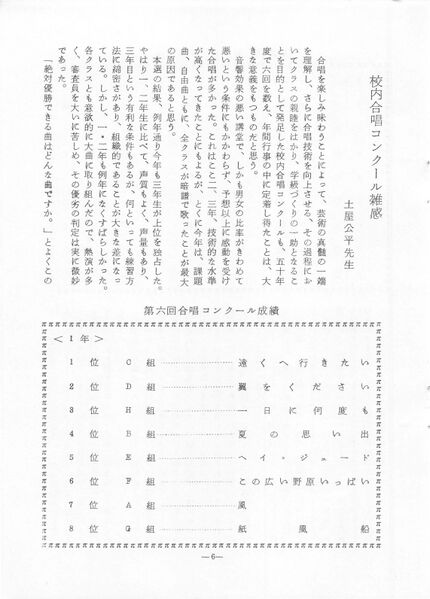 校内合唱コンクール雑感
土屋公平先生
合唱を楽しみ味わうことによって、芸術の真髄の一端
を理解し、さらに合唱技術を向上させる、その過程にお
いてクラスの親睦をはかり、学級づくりの一助となるこ
とを目的として発足した校内合唱コンクールも、五十年
度で六回を数え、年間行事の中に定着し得たことは、大
きな意義をもつものだと思う。
音響効果の悪い講堂で、しかも男女の比率がきわめて
悪いという条件にもかかわらず、予想以上に感動を受け
た合唱が多かった。これはここ二、三年、技術的な水準
が高くなってきたことにもよるが、とくに今年は、課題
曲、自由曲ともに、全クラスが暗譜で歌ったことが最大
の原因であると思う。
本選の結果、例年通り今年も三年生が上位を独占した。
やはり一、二年生に比べて、声質もよく、声量もあり、
三年目という有利な条件もあるが、何といっても練習方
法に綿密さがあり、組織的であることが大きな差になっ
ている。しかし、一・二年も例年になくすばらしかった。
各クラスとも意欲的に大曲に取り組んだので、熱演が多
く、審査員を大いに苦しめ、その優劣の判定は実に微妙
であった。
「絶対優勝できる曲はどんな曲ですか。」とよくこの
第六回合唱コンクール成績
＜1年＞
1位 C組 遠くへ行きたい
2位 D組 翼をください
3位 H組 一日に何度も
4位 B組 夏の思い出
5位 E組 ヘイ・ジュード
6位 F組 この広い野原いっぱい
7位 A組 風
8位 G組 紙風船
—6—